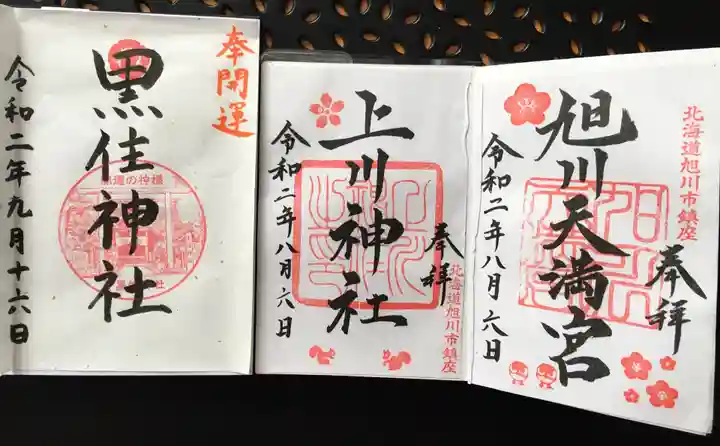 奉開運
黒住神社
開運の神様
令和二年九月十六日
奉拝
上川神社
北海道旭川市鎮座
令和二年八月六日
北海道旭川市鎮座
奉拝
旭川天満宮
令和二年八月六日